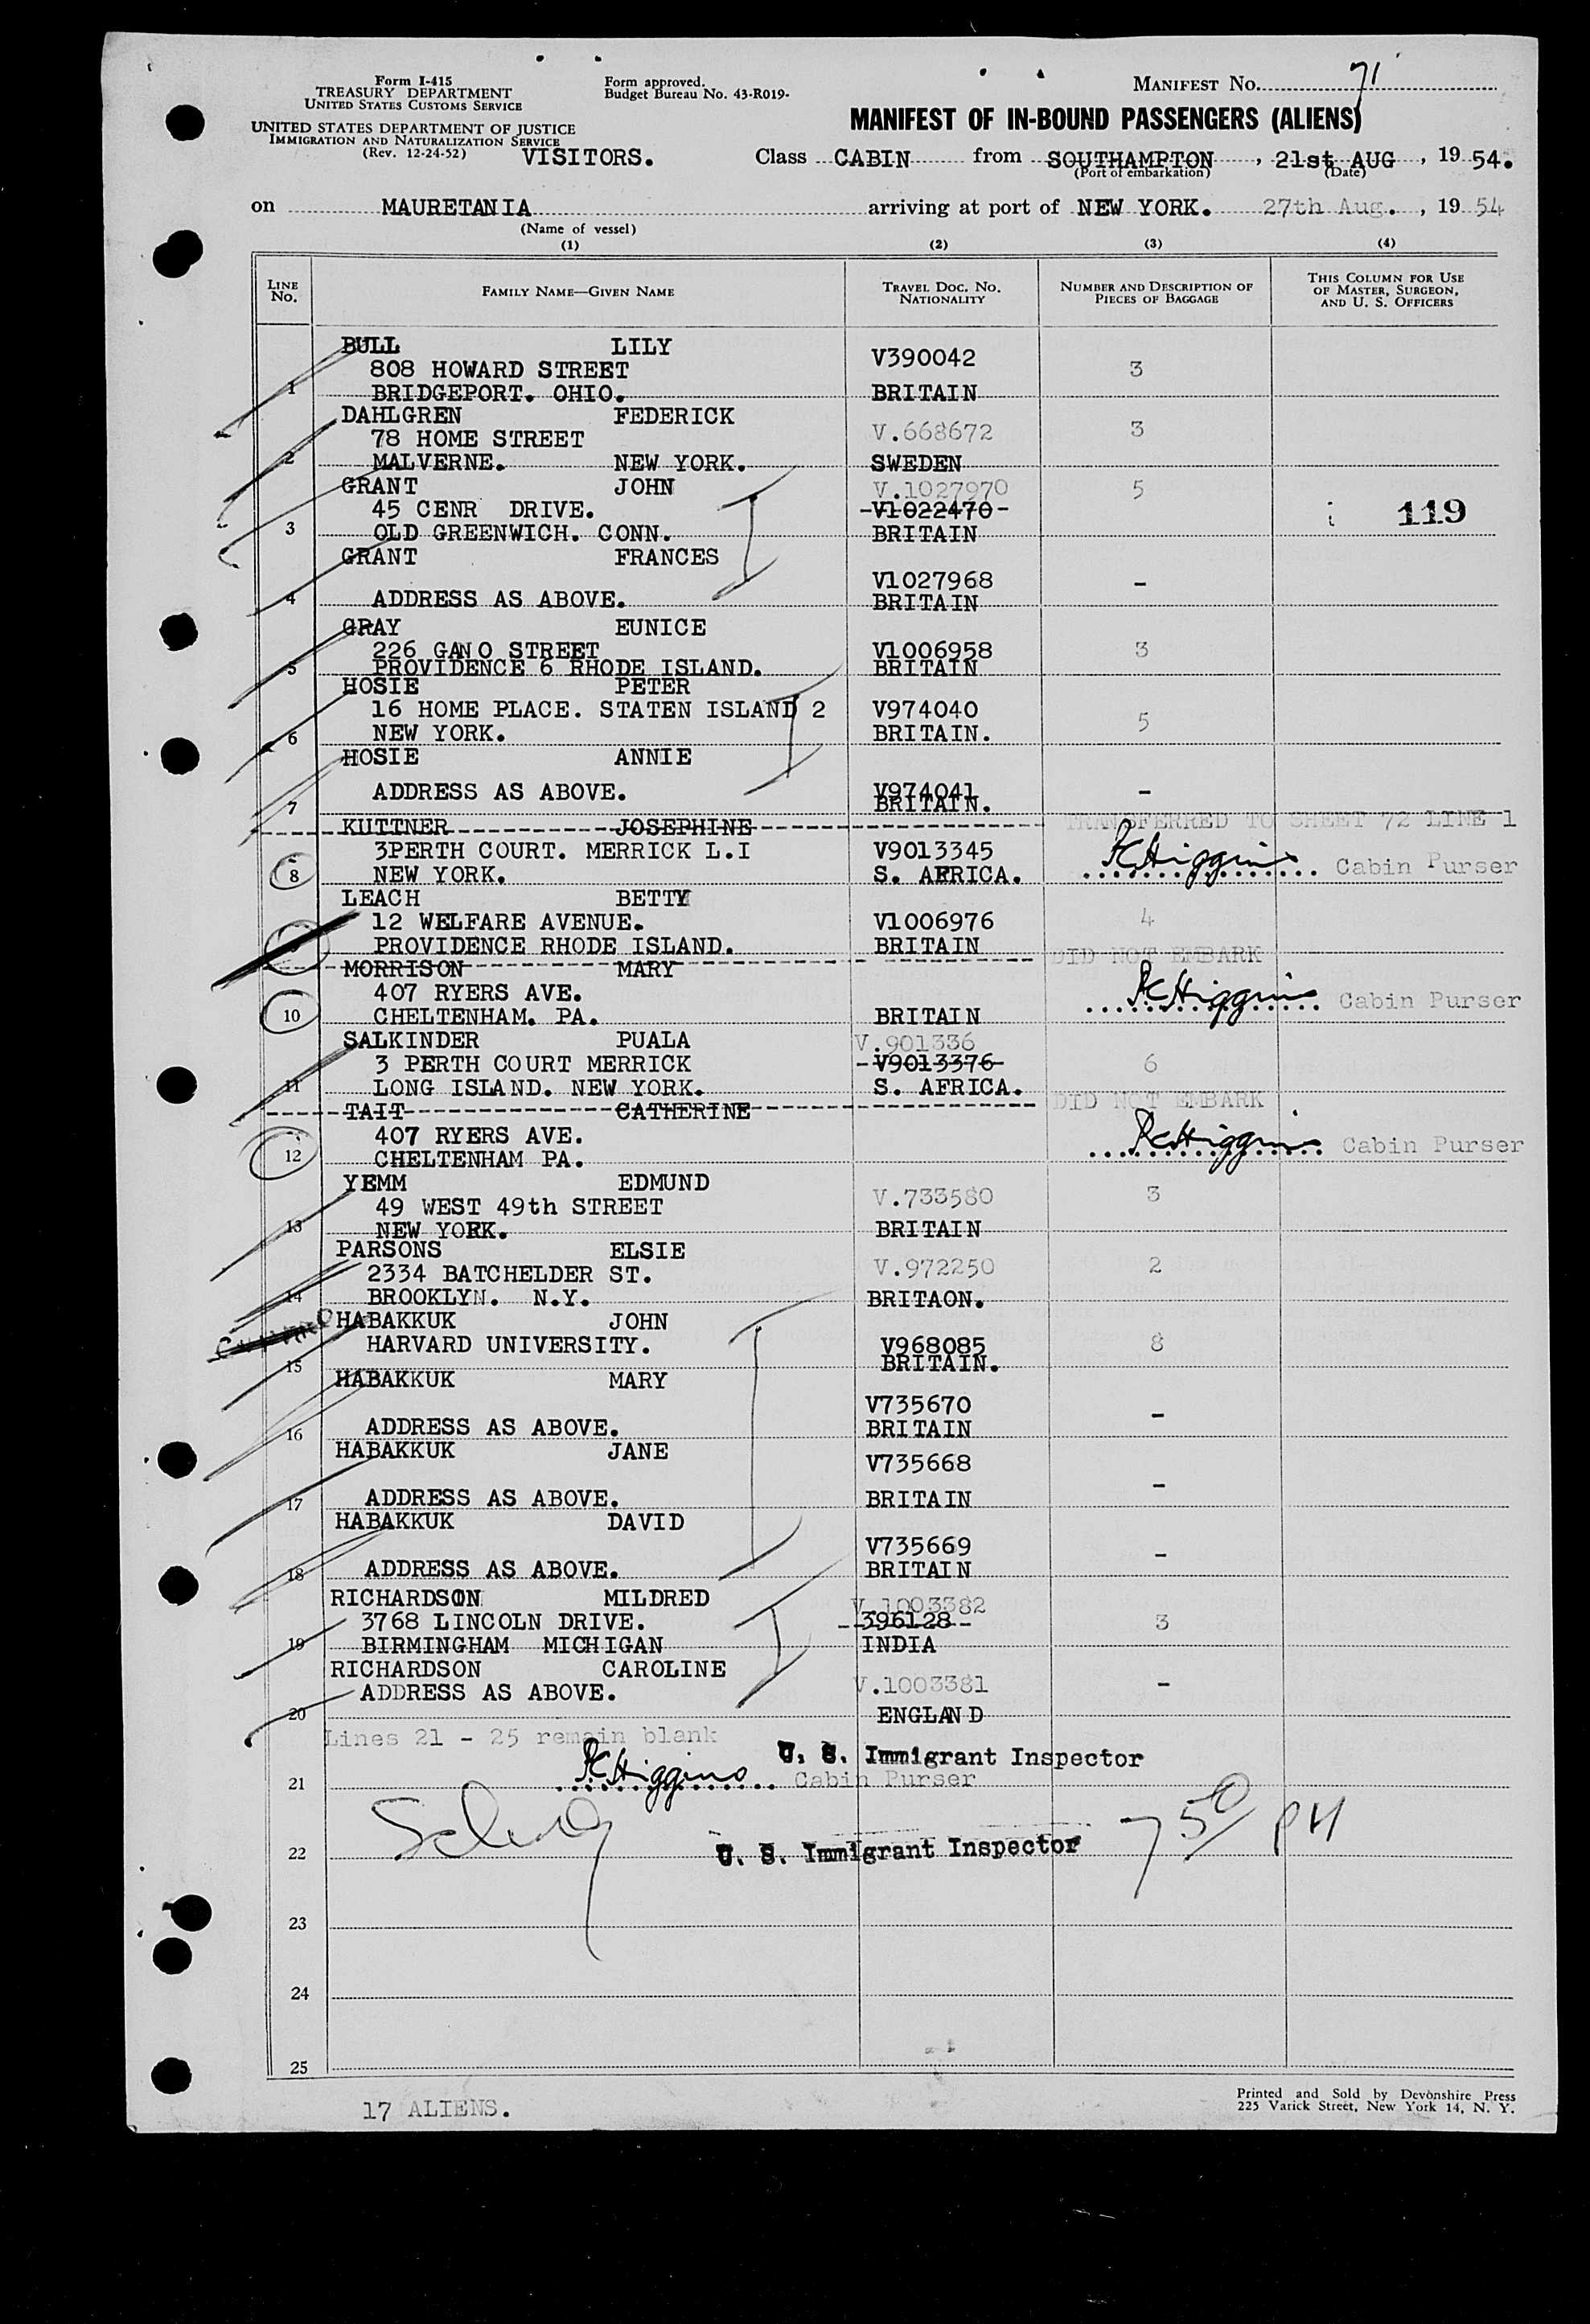 Form I-415
TREASURY DEPARTMENT
UNITED STATES CUSTOMS SERVICE
Form approved.
Budget Bureau No. 43-R019-
MANIFEST NO. 71
UNITED STATES DEPARTMENT OF JUSTICE
IMMIGRATION AND NATURALIZATION SERVICE
(Rev. 12-24-52)
MANIFEST OF IN-BOUND PASSENGERS (ALIENS)
VISITORS. Class CABIN from SOUTHAMPTON, 21st AUG, 19 54.
(Port of embarkation) (Date)
on MAURETANIA arriving at port of NEW YORK. 27th Aug., 19 54
(Name of vessel)
(1) (2) (3) (4)
LINE NO. FAMILY NAME—GIVEN NAME TRAVEL DOC. NO. NATIONALITY NUMBER AND DESCRIPTION OF PIECES OF BAGGAGE THIS COLUMN FOR USE OF MASTER, SURGEON, AND U. S. OFFICERS
BULL LILY
808 HOWARD STREET V390042 3
1 BRIDGEPORT. OHIO. BRITAIN
DAHLGREN FEDERICK
78 HOME STREET V.668672 3
2 MALVERNE. NEW YORK. SWEDEN
GRANT JOHN V.1027970 5
45 CENR DRIVE. -V1022470- 119
3 OLD GREENWICH. CONN. BRITAIN
GRANT FRANCES
V1027968 -
4 ADDRESS AS ABOVE. BRITAIN
GRAY EUNICE
226 GANO STREET V1006958 3
5 PROVIDENCE 6 RHODE ISLAND. BRITAIN
HOSIE PETER
16 HOME PLACE. STATEN ISLAND 2 V974040 5
6 NEW YORK. BRITAIN.
HOSIE ANNIE
ADDRESS AS ABOVE. V974041 -
7 BRITAIN.
KUTTNER JOSEPHINE TRANSFERRED TO SHEET 72 LINE 1
3PERTH COURT. MERRICK L.I V9013345 Higgins Cabin Purser
8 NEW YORK. S. AFRICA.
LEACH BETTY
12 WELFARE AVENUE. V1006976 4
PROVIDENCE RHODE ISLAND. BRITAIN
MORRISON MARY DID NOT EMBARK
407 RYERS AVE. Higgins Cabin Purser
10 CHELTENHAM. PA. BRITAIN
SALKINDER PUALA V.901336
3 PERTH COURT MERRICK -V9013376- 6
11 LONG ISLAND. NEW YORK. S. AFRICA.
TAIT CATHERINE DID NOT EMBARK
407 RYERS AVE. Higgins Cabin Purser
12 CHELTENHAM PA.
YEMM EDMUND
49 WEST 49th STREET V.733580 3
13 NEW YORK. BRITAIN
PARSONS ELSIE
2334 BATCHELDER ST. V.972250 2
14 BROOKLYN. N.Y. BRITAON.
HABAKKUK JOHN
HARVARD UNIVERSITY. V968085 8
15 BRITAIN.
HABAKKUK MARY
V735670 -
16 ADDRESS AS ABOVE. BRITAIN
HABAKKUK JANE
V735668 -
17 ADDRESS AS ABOVE. BRITAIN
HABAKKUK DAVID
V735669 -
18 ADDRESS AS ABOVE. BRITAIN
RICHARDSON MILDRED V.1003382
3768 LINCOLN DRIVE. -396128- 3
19 BIRMINGHAM MICHIGAN INDIA
RICHARDSON CAROLINE
ADDRESS AS ABOVE. V.1003381 -
20 ENGLAND
Lines 21 - 25 remain blank
U. S. Immigrant Inspector
21 Higgins Cabin Purser
22 U. S. Immigrant Inspector 7 50 PM
23
24
25
17 ALIENS.
Printed and Sold by Devonshire Press
225 Varick Street, New York 14, N. Y.